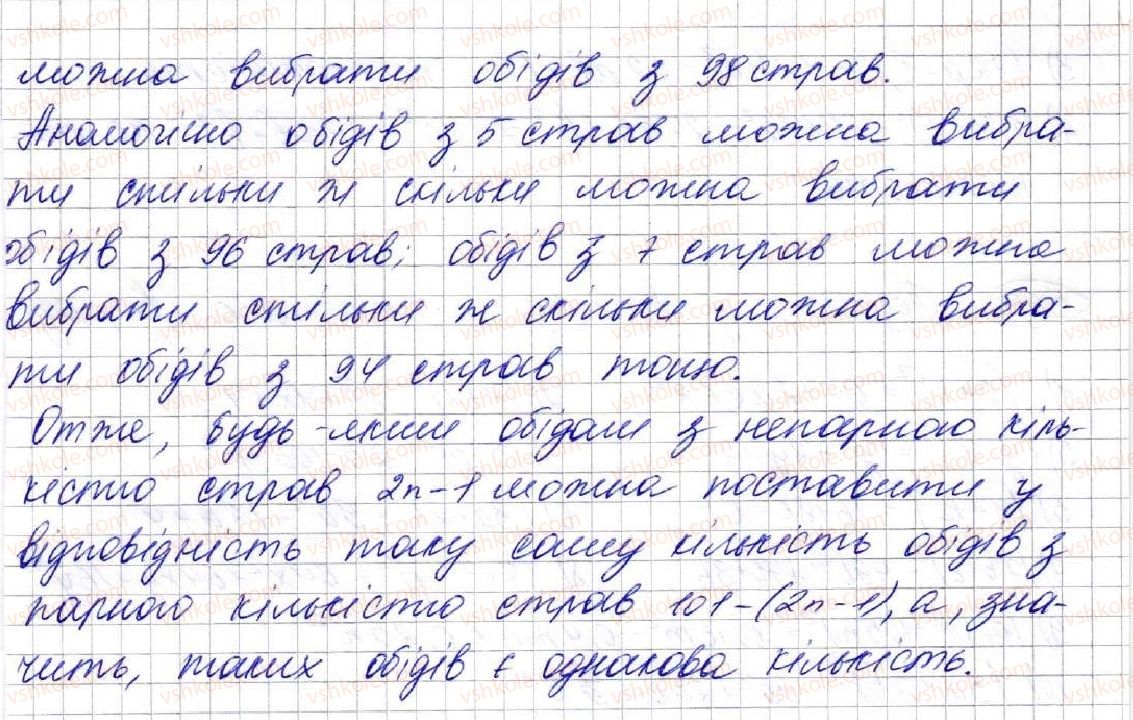 можна вибрати обідів з 98 страв.
Аналогічно обідів з 5 страв можна вибра-
ти стільки ж скільки можна вибрати
обідів з 96 страв; обідів з 7 страв можна
вибрати стільки ж скільки можна вибра-
ти обідів з 94 страв тощо.
Отже, будь-яким обідам з непарною кіль-
кістю страв 2n-1 можна поставити у
відповідність таку саму кількість обідів з
парною кількістю страв 101-(2n-1), а, зна-
чить, таких обідів є однакова кількість.